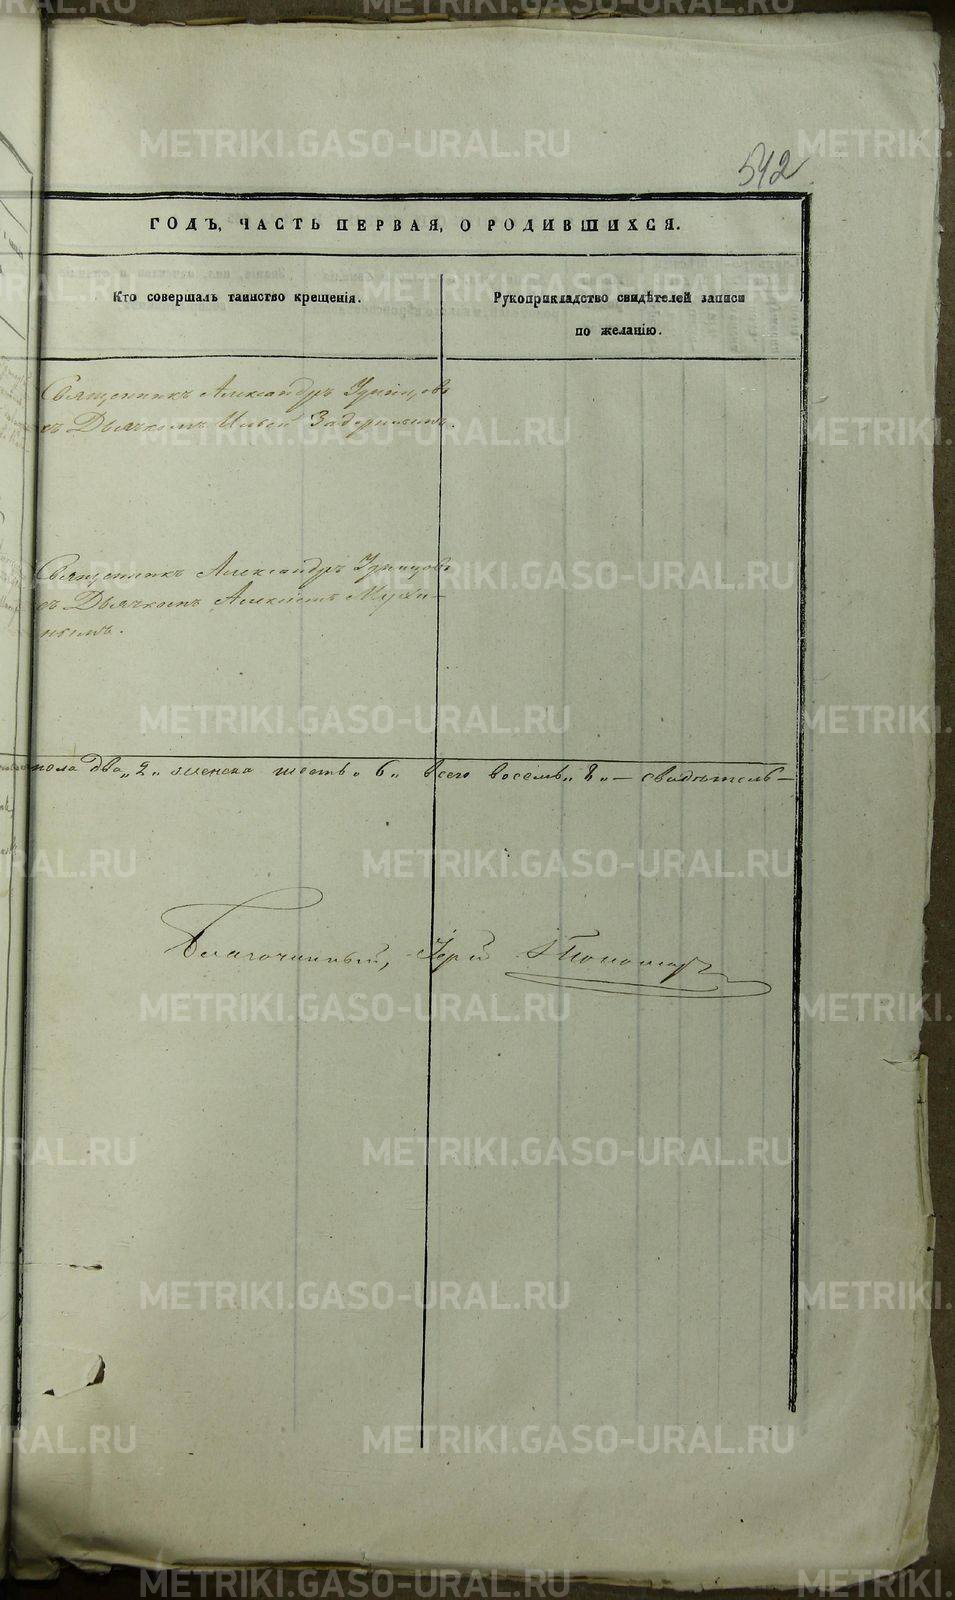 542
ГОДЪ, ЧАСТЬ ПЕРВАЯ, О РОДИВШИХСЯ.
Кто совершалъ таинство крещенія.
Рукоприкладство свидѣтелей записи
по желанію.
Священникъ Александръ Удинцовъ
съ Дьячкомъ Ильей
Священникъ Александръ Удинцовъ
съ Дьячкомъ Алексіемъ Мухи-
нымъ.
пола два „2„ женска шесть „6„ всего восемь „8„ — свидѣтель-
Благочинный, Іерей Пономар
METRIKI.GASO-URAL.RU